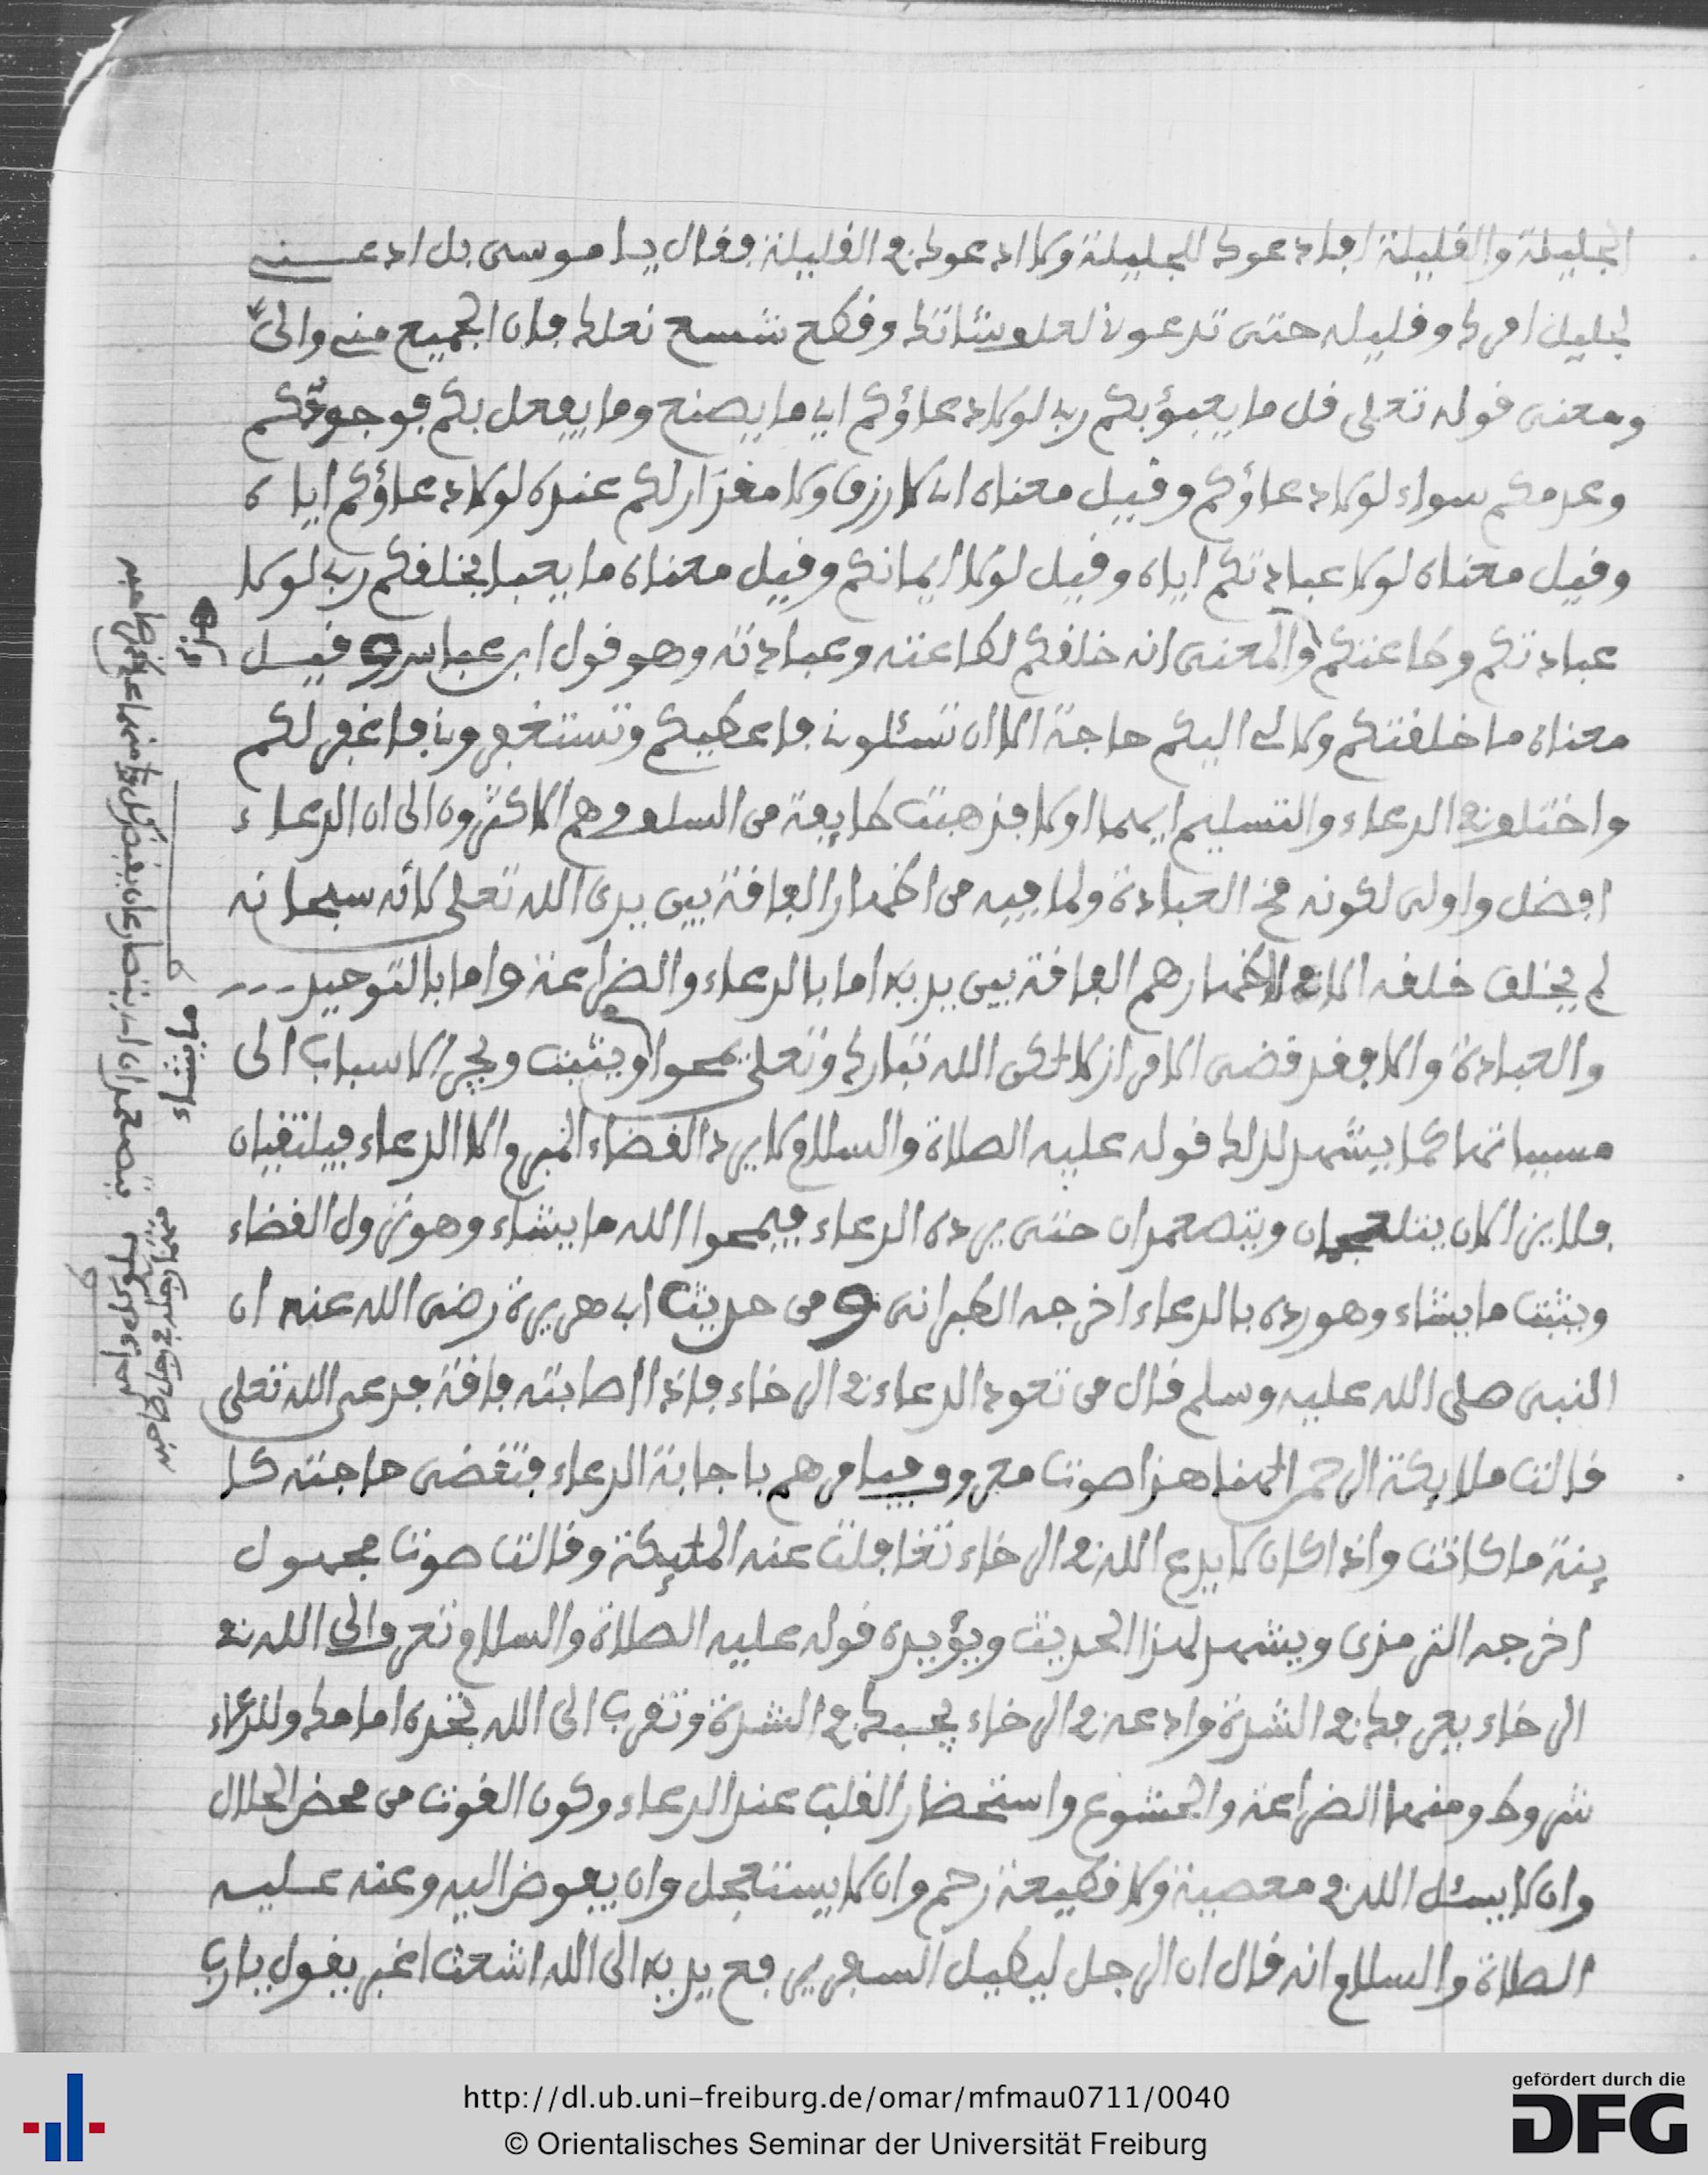 الجليلة والقليلة افادعوك للجليلة ولا ادعوك في القليلة فقال يا موسى بل ادعني
لجليل امرك وقليله حتى تدعوني لعلف شاتك وفطع شسع نعلك فان الجميع مني والىّ
ومعنى قوله تعلى قل ما يعبؤ بكم ربي لولا دعاؤكم اي ما يصنع وما يفعل بكم فوجودكم
وعدمكم سواء لولا دعاؤكم وقيل معناه اي لا رزق ولا مقدار لكم عنده لولا دعاؤكم اياه
وقيل معناه لولا عبادتكم اياه وقيل لولا ايمانكم وقيل معناه ما يعبا بخلقكم ربي لولا
عبادتكم وطاعتكم والمعنى انه خلقكم لطاعته وعبادته وهو قول ابن عباس وقيل
معناه ما خلقتكم ولا لي اليكم حاجة الا ان تسئلوني فاعطيكم وتستغفروني فاغفر لكم
واختلف في الدعاء والتسليم ايهما اولى فذهبت طايفة من السلف وهم الاكثرون الى ان الدعاء
افضل واولى لكونه مخ العبادة ولما فيه من اظهار الفاقة بين يدى الله تعلى لانه سبحانه
لم يخلق خلقه الا لاظهارهم الفاقة بين يديه اما بالدعاء والضراعة واما بالتوحيد
والعبادة والا فقد قضى الامر ازلا لكن الله تبارك وتعلى يمحوا ويثبت ويجر الاسباب الى
مسبباتها كما يشهد لذلك قوله عليه الصلاة والسلام لا يرد القضاء المبرم الا الدعاء فيلتقيان
فلا يزالان يتلعجان ويتصعدان حتى يرده الدعاء فيمحوا الله ما يشاء وهو نزول القضاء
ويثبت ما يشاء وهو رده بالدعاء اخرجه الطبرانى و من حديث ابي هريرة رضى الله عنه ان
النبى صلى الله عليه وسلم قال من تعود الدعاء في الرخاء فاذا اصابته فاقة فدعى الله تعلى
قالت ملايكة الرحمن الهنا هذا صوت معروف فيامرهم باجابة الدعاء فتقضى حاجته كا
ينة ما كانت واذا كان لا يدع الله في الرخاء تغافلت عنه المليكة وقالت صوت مجهول
اخرجه الترمذى ويشهد لهذا الحديث ويؤيده قوله عليه الصلاة والسلام تعرف الى الله في
الرخاء يعرفك في الشدة وادعه في الرخاء يجبك في الشدة وتقرب الى الله تجده امامك وللدعاء
شروط ومنها الضراعة والخشوع واستحضار القلب عند الدعاء وكون القوت من محض الحلال
وان لا يسئل الله في معصية ولا قطيعة رحم وان لا يستعجل وان يفوض اليه وعنه عليه
الصلاة والسلام انه قال ان الرجل ليطيل السفر يرفع يديه الى الله اشعث اغبر يقول يا رب
http://dl.ub.uni-freiburg.de/omar/mfmau0711/0040
© Orientalisches Seminar der Universität Freiburg
gefördert durch die
DFG